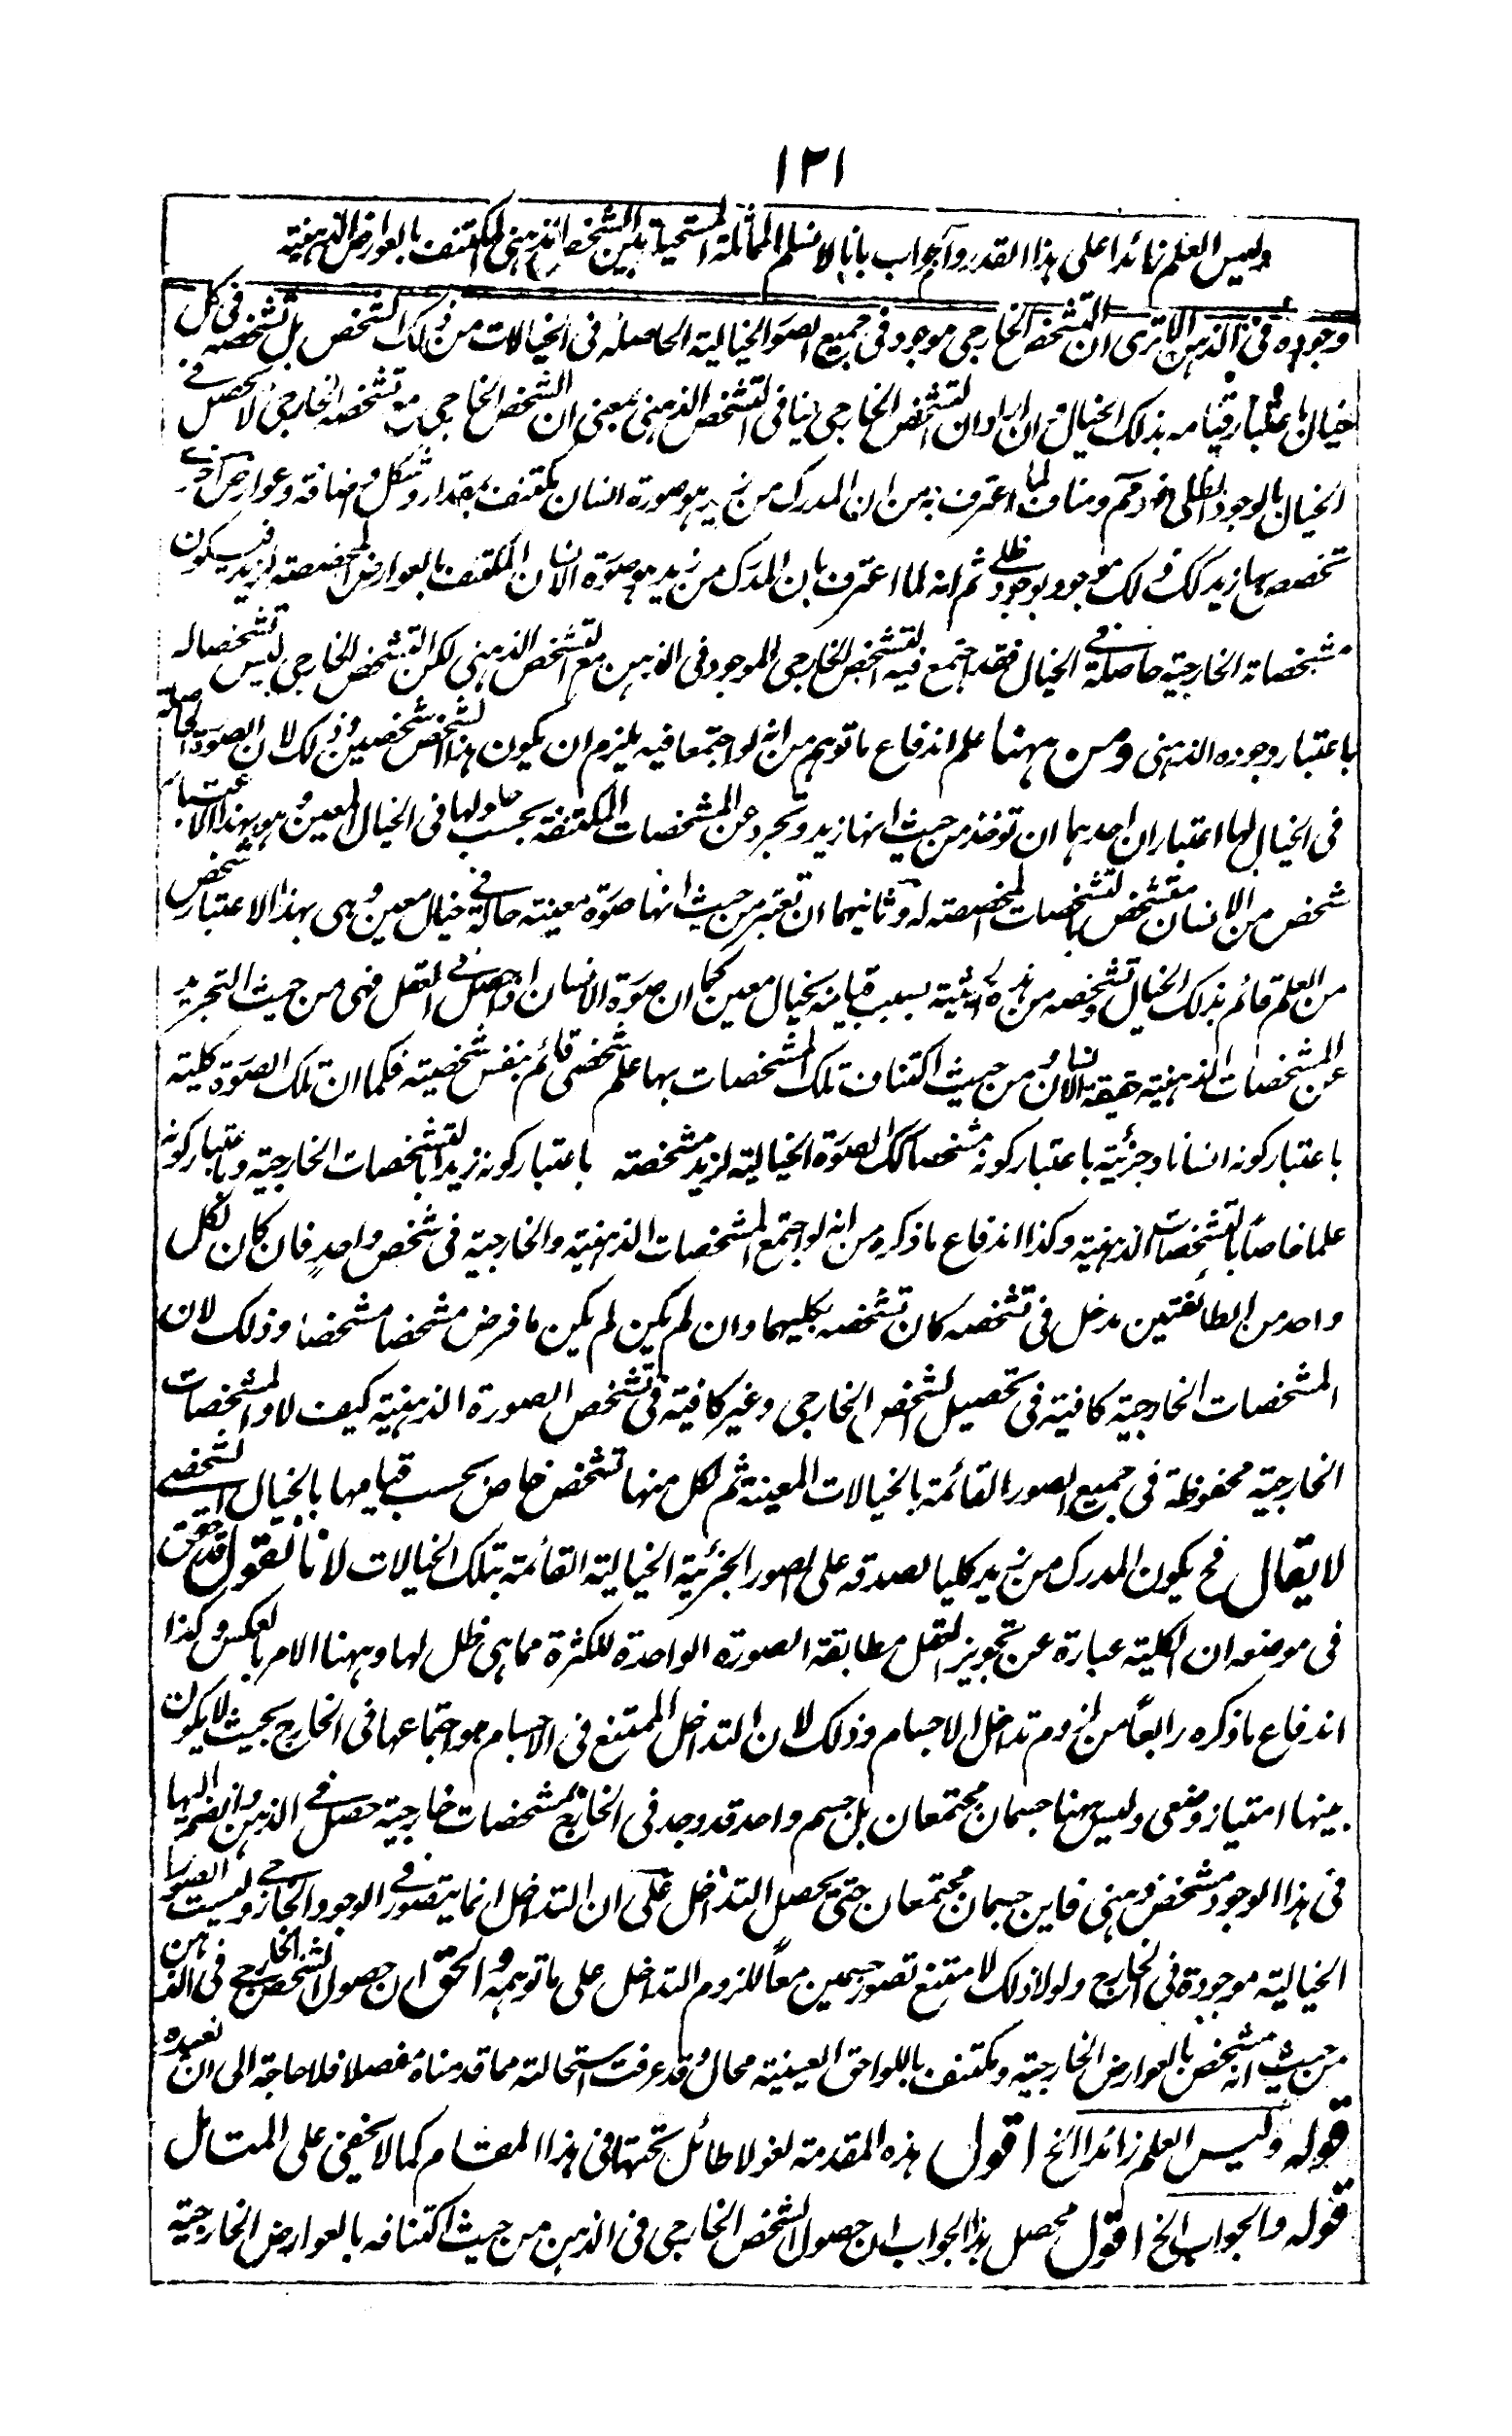 ١٢١
وليس العلم زائدا على هذا القدر والجواب بانا لا نسلم المماثلة المستحيلة بين الشخص الذهني المكتنف بالعوارض الذهنية
وجوده في الذهن الا ترى ان التشخص الخارجي موجود في جميع الصور الخيالية الحاصلة في الخيالات من ذلك الشخص بل تشخصه في كل
خيال باعتبار قيامه بذلك الخيال وان اراد ان التشخص الخارجي ينافي التشخص الذهني بمعنى ان الشخص الخارجي مع تشخصه الخارجي لا يحصل في
الخيال بالوجود الظلي فهو مم ومناف لما اعترف به من ان المدرك من زيد هو صورة انسان مكتنف بمقدار وشكل واضافة وعوارض اخرى
تخصصها زيد كك وذلك موجود بوجود ظلي ثم انه لما اعترف بان المدرك من زيد هو صورة الانسان المكتنف بالعوارض المخصصة لزيد فيكون
مشخصاته الخارجية حاصلة في الخيال فقد اجتمع فيه التشخص الخارجي الموجود في الذهن مع التشخص الذهني لكن التشخص الخارجي ليس تشخصا له
باعتبار وجوده الذهني ومن ههنا علم اندفاع ما توهم من انه لو اجتمعا فيه يلزم ان يكون هذا الشخص شخصين وذلك لان الصورة الحاصلة
في الخيال لها اعتباران احدهما ان توخذ من حيث انها زيد وتجرد عن المشخصات المكتنفة بحسب حلولها في الخيال المعين وهو بهذا الاعتبار
شخص من الانسان متشخص بالتشخصات المخصصة له وثانيهما ان تعتبر من حيث انها صورة معينة حالة في خيال معين وهي بهذا الاعتبار شخص
من العلم قائم بذلك الخيال وتشخصه من هذه الحيثية بسبب قيامه بخيال معين كما ان صورة الانسان اذا حصل في العقل فهي من حيث التجريد
عن المشخصات الذهنية حقيقة الانسان ومن حيث اكتناف تلك المشخصات بها علم شخصي قائم بنفس شخصية فكما ان تلك الصورة كلية
باعتبار كونه انسانا وجزئية باعتبار كونه مشخصا كك الصورة الخيالية لزيد مشخصة باعتبار كونه زيدا بالتشخصات الخارجية وباعتبار كونه
علما خاصا بالتشخصات الذهنية وكذا اندفاع ما ذكره من انه لو اجتمع المشخصات الذهنية والخارجية في شخص واحد فان كان لكل
واحد من الطائفتين مدخل في تشخصه كان تشخصه بكليهما وان لم يكن لم يكن ما فرض مشخصا مشخصا وذلك لان
المشخصات الخارجية كافية في تحصيل الشخص الخارجي وغير كافية في تشخص الصورة الذهنية كيف لا والمشخصات
الخارجية محفوظة في جميع الصور القائمة بالخيالات المعينة ثم لكل منها تشخص خاص بحسب قيامها بالخيال الشخصي
لا يقال فح يكون المدرك من زيد كليا لصدقه على الصور الجزئية الخيالية القائمة بتلك الخيالات لانا نقول قد حقق
في موضعه ان الكلية عبارة عن تجويز العقل مطابقة الصورة الواحدة للكثرة مما هي ظل لها وههنا الامر بالعكس وكذا
اندفاع ما ذكره رابعا من لزوم تداخل الاجسام وذلك لان التداخل الممتنع في الاجسام هو اجتماعها في الخارج بحيث لا يكون
بينها امتياز وضعي وليس ههنا جسمان مجتمعان بل جسم واحد قد وجد في الخارج بمشخصات خارجية حصل في الذهن وانضم اليها
في هذا الوجود مشخص ذهني فاين جسمان مجتمعان حتى يحصل التداخل على ان التداخل انما يتصور في الوجود الخارجي وليست الصور
الخيالية موجودة في الخارج ولولا ذلك لامتنع تصور جسمين معا للزوم التداخل على ما توهمه والحق ان حصول الشخص الخارجي في الذهن
من حيث انه متشخص بالعوارض الخارجية ومكتنف باللواحق العينية محال وقد عرفت استحالته مما قدمناه مفصلا فلا حاجة الى ان نعيده
قوله وليس العلم زائدا الخ اقول هذه المقدمة لغو لا طائل تحتها في هذا المقام كما لا يخفى على المتامل
قوله والجواب الخ اقول محصل هذا الجواب ان حصول الشخص الخارجي في الذهن من حيث اكتنافه بالعوارض الخارجية